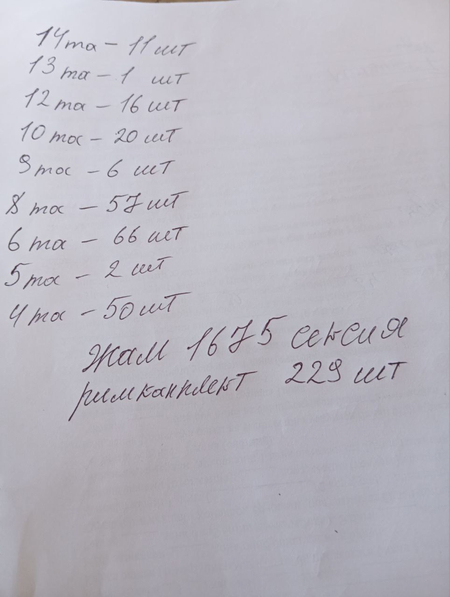 14та - 11 шт
13та - 1 шт
12та - 16 шт
10та - 20 шт
9та - 6 шт
8та - 57 шт
6та - 66 шт
5та - 2 шт
4та - 50 шт
Жам 1675 сексия
римкамплект 229 шт